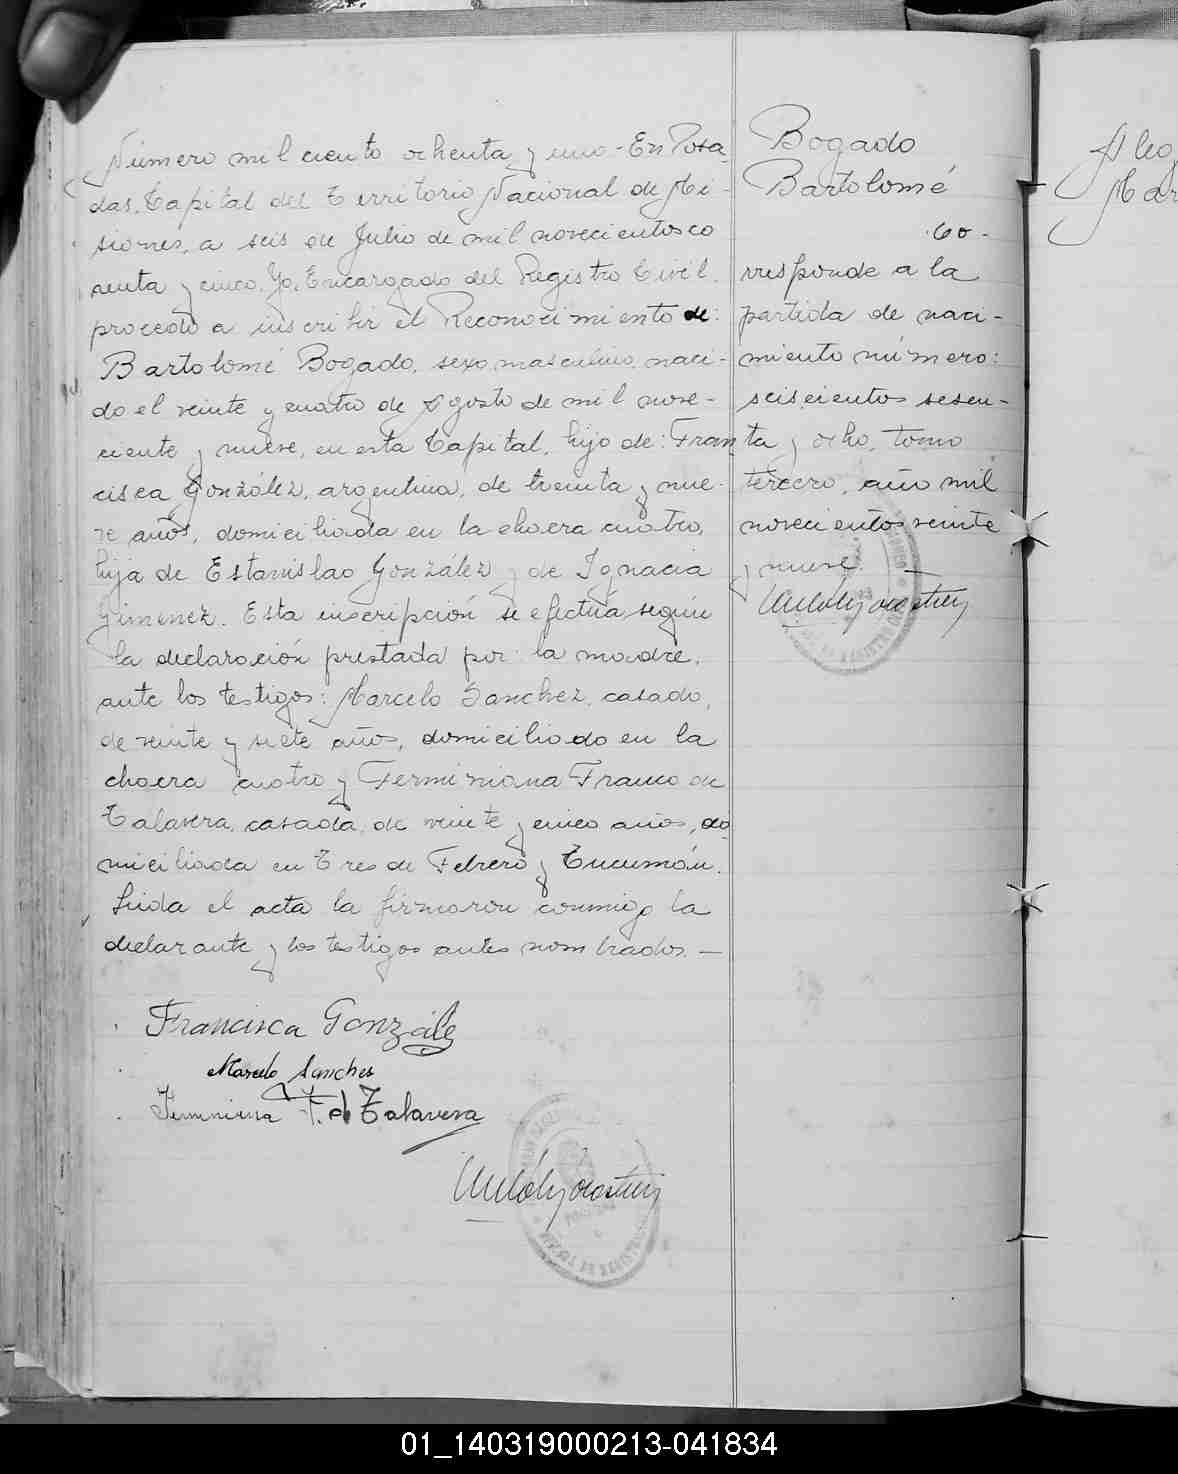 Número mil ciento ochenta y uno - En Posa
das, Capital del Territorio Nacional de Mi-
siones, a seis de Julio de mil novecientos co
renta y cinco, Yo, Encargado del Registro Civil
procedo a inscribir el Reconocimiento de:
Bartolomé Bogado, sexo masculino, naci-
do el veinte y cuatro de Agosto de mil nove-
ciente y nueve, en esta Capital, hijo de: Fran
cisca González, argentina, de treinta y nue-
ve años, domiciliada en la chacra cuatro,
hija de Estanislao González y de Ignacia
Gimenez. Esta inscripción se efectúa según
la declaración prestada por: la madre,
ante los testigos: Marcelo Sanchez, casado,
de veinte y siete años, domiciliado en la
chacra cuatro y Ferminiana Franco de
Talavera, casada, de veinte y cinco años, do
miciliada en Tres de Febrero y Tucumán.
Leida el acta la firmaron conmigo la
declarante y los testigos antes nombrados. —
Francisca Gonzále
Marcelo Sanches
Ferminiana F. d Talavera
Bogado
Bartolomé
Co-
rresponde a la
partida de naci-
miento número:
seiscientos sesen-
ta y ocho, tomo
tercero, año mil
novecientos veinte
y nueve.
Aleg
Mar
01_140319000213-041834